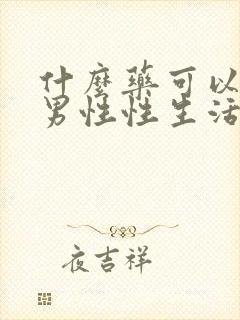 什麼藥可以
男性性生活
夜吉祥